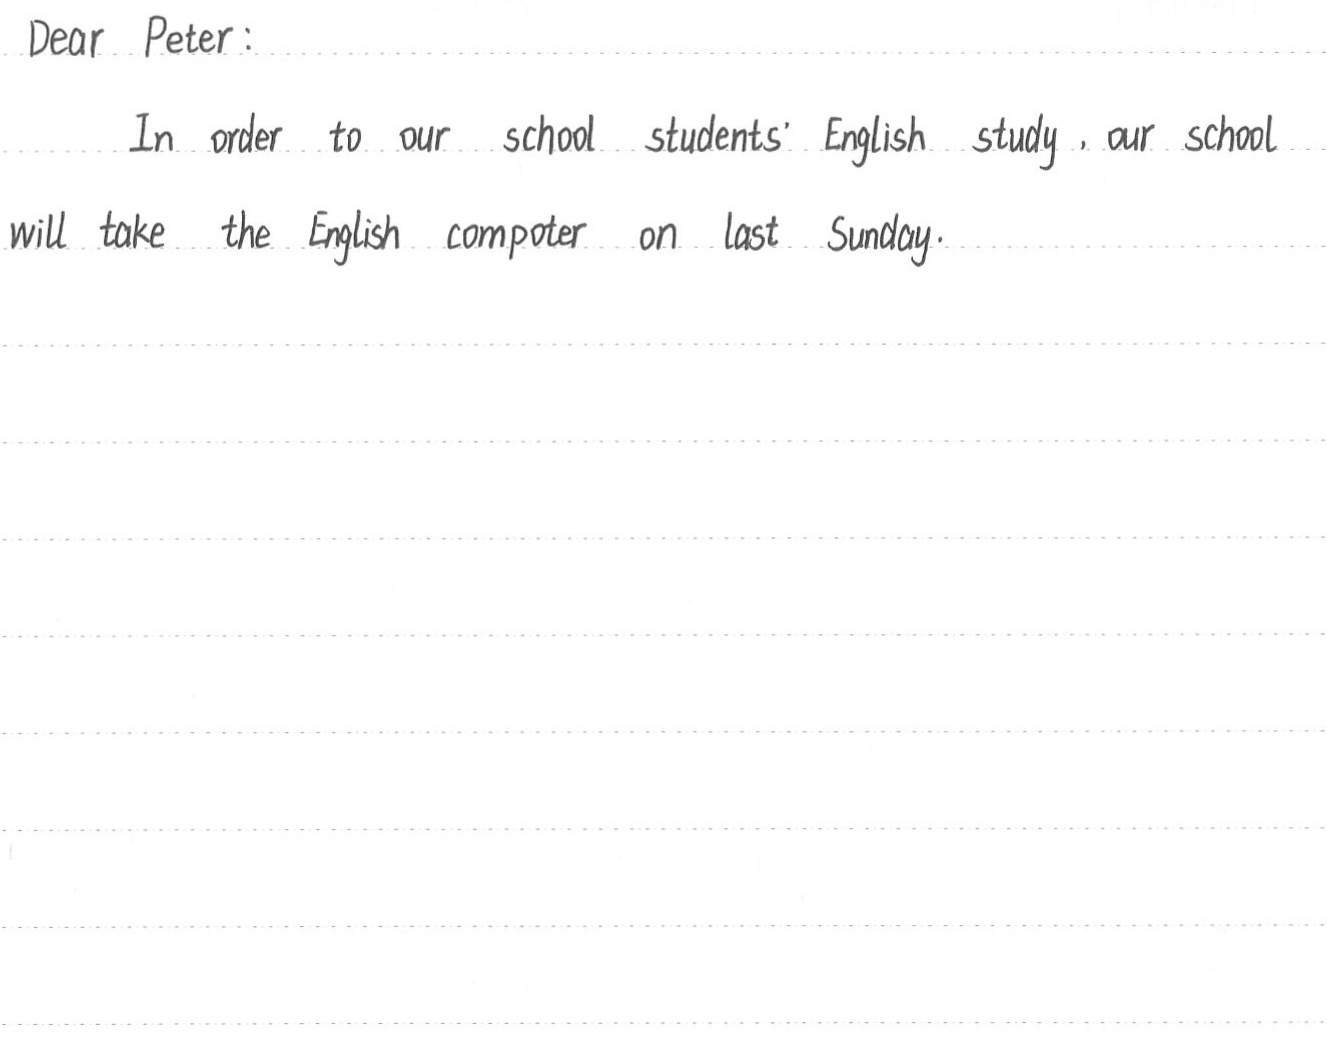 Dear Peter:
In order to our school students' English study, our school
will take the English compoter on last Sunday.